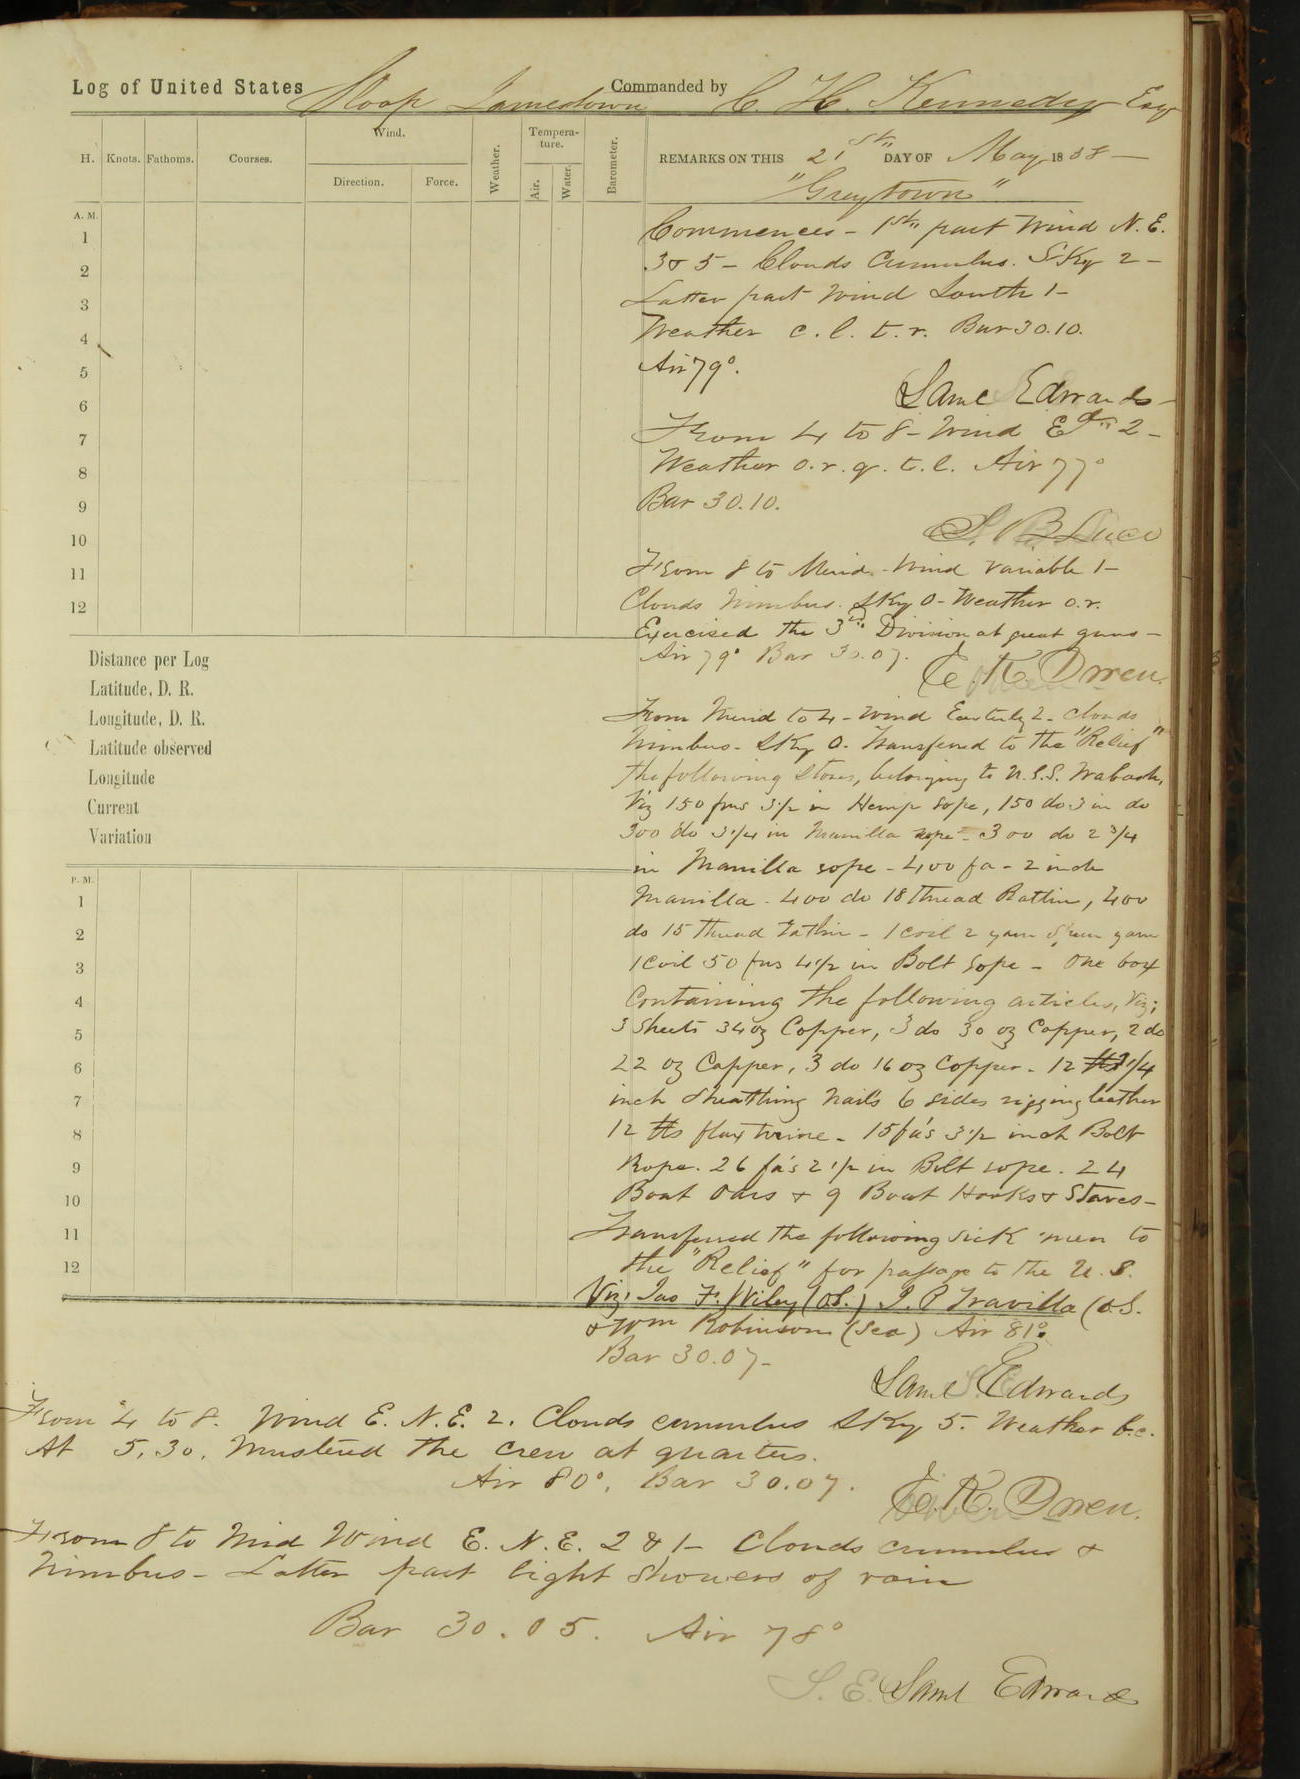 Log of United States Sloop Jamestown Commanded by C. H. Kennedy Esq
H. Knots. Fathoms. Courses. Wind. Direction. Force. Weather. Tempera-ture. Air. Water. Barometer. REMARKS ON THIS 21st DAY OF May 1858
"Greytown"
A. M.
1
2
3
4
5
6
7
8
9
10
11
12
Commences - 1st part Wind N. E.
3 & 5 - Clouds Cumulus. Sky 2 -
Latter part Wind South 1 -
Weather c. l. t. r. Bar 30.10.
Air 79°.
Saml Edwards
From 4 to 8 - Wind Ed 2 -
Weather o. r. q. t. l. Air 77°
Bar 30.10.
S. B. Luce
From 8 to Merid - Wind variable 1 -
Clouds Nimbus. Sky 0 - Weather o. r.
Exercised the 3rd Division at great guns -
Air 79° Bar 30.07.
E. K. Owen.
Distance per Log
Latitude, D. R.
Longitude, D. R.
Latitude observed
Longitude
Current
Variation
From Merid to 4 - Wind Easterly 2 - Clouds
Nimbus - Sky 0. Transferred to the "Relief"
the following Stores, belonging to U. S. S. Wabash,
Viz 150 fms 3 1/2 in Hemp rope, 150 do 3 in do
300 do 3 1/4 in Manilla rope - 300 do 2 3/4
in Manilla rope - 400 fa - 2 inch
Manilla - 400 do 18 thread Ratlin, 400
do 15 thread Ratlin - 1 coil 2 yarn Spun yarn
1 coil 50 fms 4 1/2 in Bolt rope - One box
Containing the following articles, Viz;
3 Sheets 34 oz Copper, 3 do 30 oz Copper, 2 do
22 oz Copper, 3 do 16 oz Copper - 12 1/4
inch Sheathing Nails 6 sides rigging leather
12 lbs flax twine - 15 fa's 3 1/2 inch Bolt
Rope. 26 fa's 2 1/2 in Bolt rope. 24
Boat Oars & 9 Boat Hooks & Staves -
Transferred the following sick men to
the "Relief" for passage to the U. S.
Viz; Jas F. Wiley (O.S.) J. P Travilla (O.S.
& Wm Robinson (Sea) Air 81°.
Bar 30.07 -
Saml Edwards
P. M.
1
2
3
4
5
6
7
8
9
10
11
12
From 4 to 8. Wind E. N. E. 2. Clouds cumulus Sky 5. Weather b. c.
At 5.30. Mustered the crew at quarters.
Air 80°. Bar 30.07.
E. K. Owen.
From 8 to Mid Wind E. N. E. 2 & 1 - Clouds cumulus &
Nimbus - Latter part light Showers of rain
Bar 30.05. Air 78°
S. E. Saml Edwards